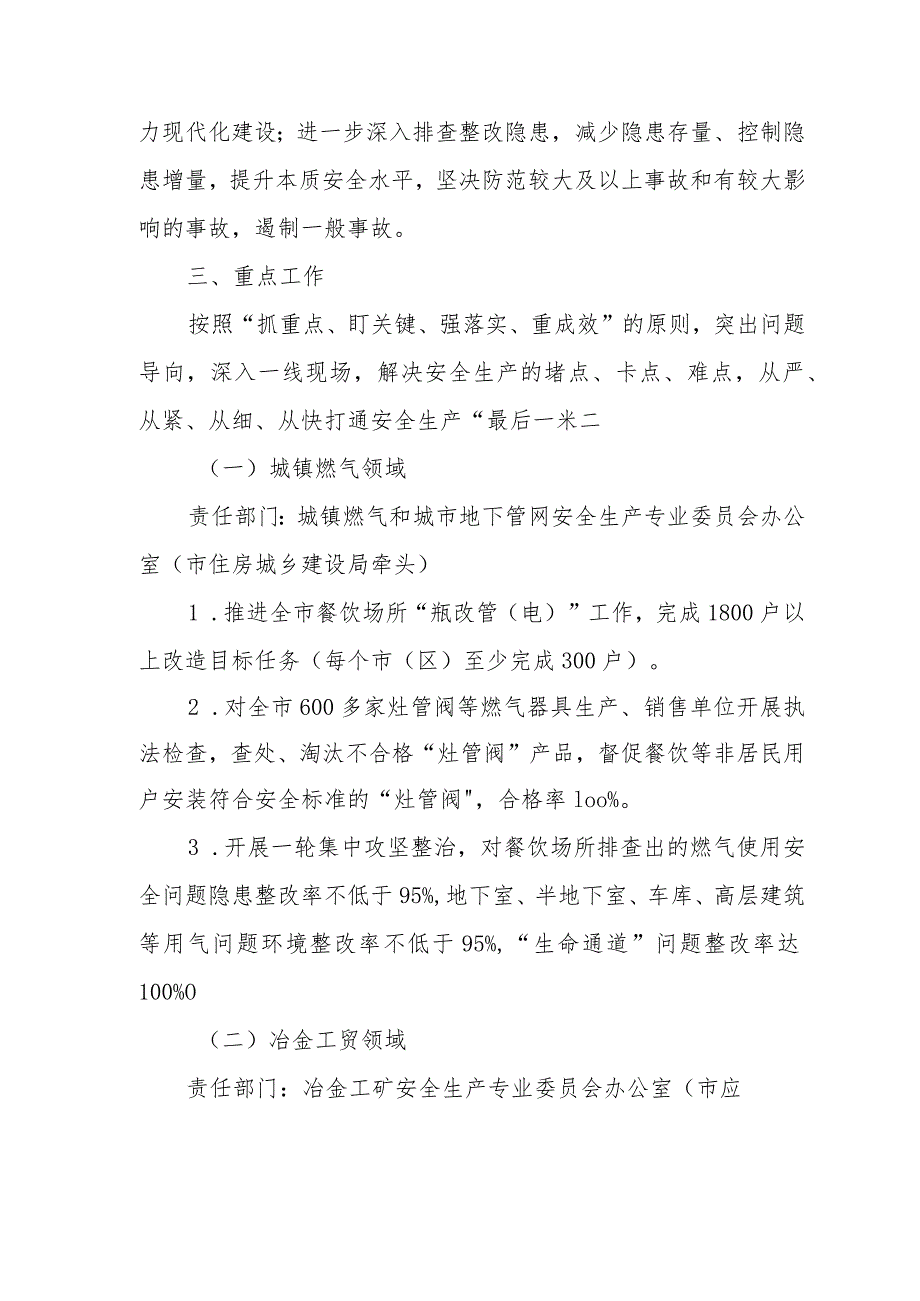 力现代化建设；进一步深入排查整改隐患，减少隐患存量、控制隐
患增量，提升本质安全水平，坚决防范较大及以上事故和有较大影
响的事故，遏制一般事故。
三、重点工作
按照“抓重点、盯关键、强落实、重成效”的原则，突出问题
导向，深入一线现场，解决安全生产的堵点、卡点、难点，从严、
从紧、从细、从快打通安全生产“最后一米二
（一）城镇燃气领域
责任部门：城镇燃气和城市地下管网安全生产专业委员会办公
室（市住房城乡建设局牵头）
1 .推进全市餐饮场所“瓶改管（电）”工作，完成1800户以
上改造目标任务（每个市（区）至少完成300户）。
2 .对全市600多家灶管阀等燃气器具生产、销售单位开展执
法检查，查处、淘汰不合格“灶管阀”产品，督促餐饮等非居民用
户安装符合安全标准的“灶管阀"，合格率loo%。
3 .开展一轮集中攻坚整治，对餐饮场所排查出的燃气使用安
全问题隐患整改率不低于95%,地下室、半地下室、车库、高层建筑
等用气问题环境整改率不低于95%,“生命通道”问题整改率达
100%O
（二）冶金工贸领域
责任部门：冶金工矿安全生产专业委员会办公室（市应